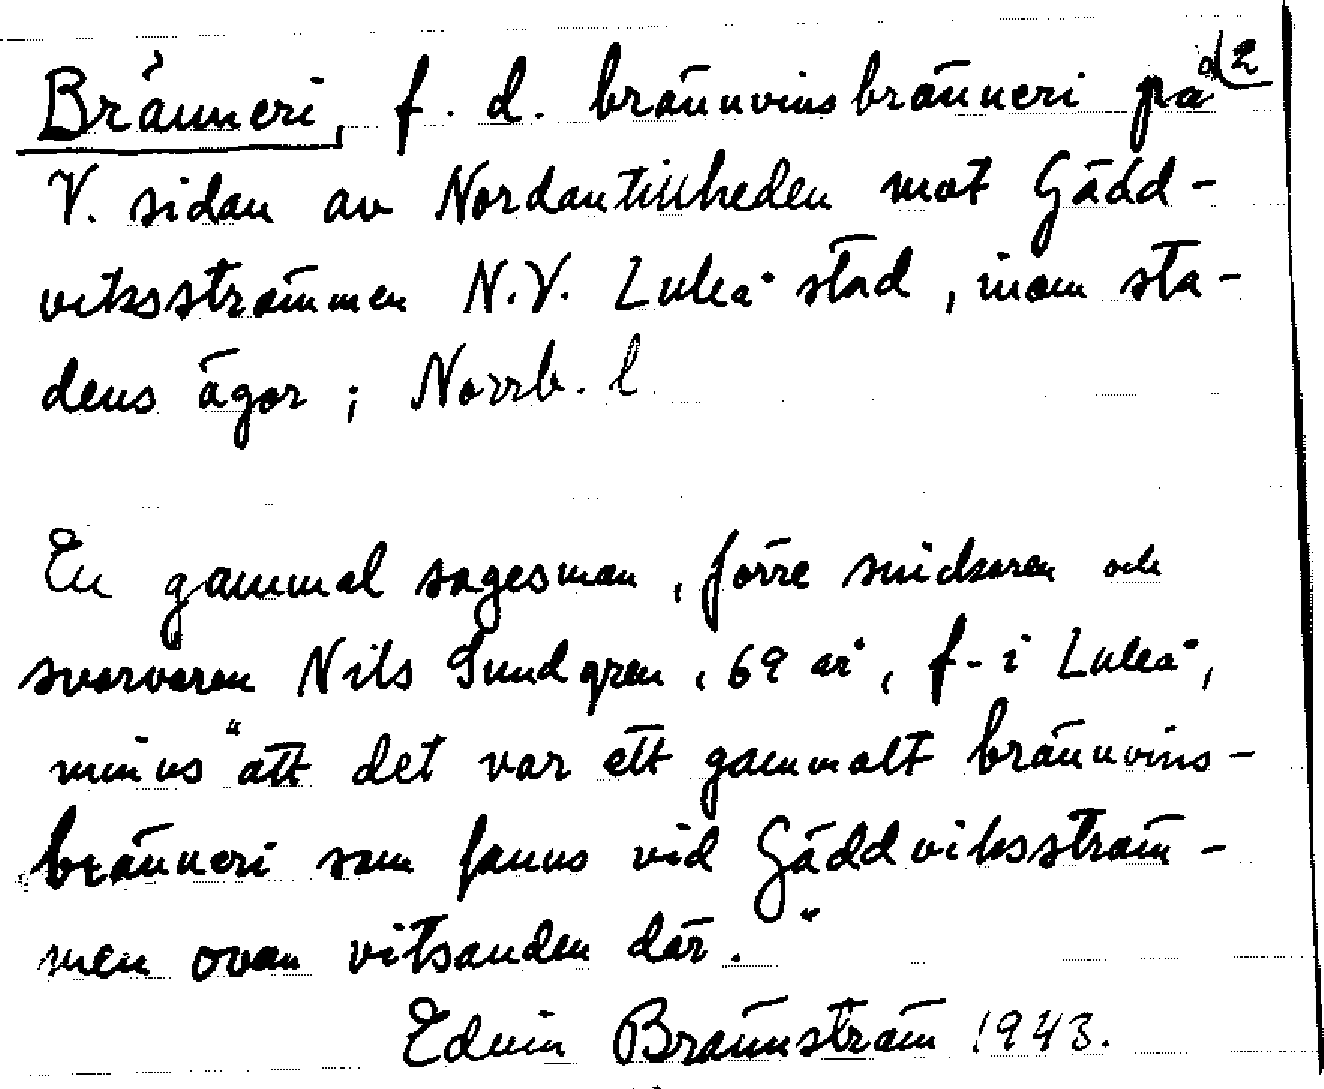 d2
Bränneri, f. d. brännvinsbränneri på
V. sidan av Nordantillheden mot Gädd-
viksströmmen N.V. Luleå stad, inom sta-
dens ägor; Norrb. l
En gammal sagesman, förre snickaren och
svarvaren Nils Sundgren, 69 år, f. i Luleå,
minns "att det var ett gammalt brännvins-
bränneri som fanns vid Gäddviksström-
men ovan vitsanden där."
Edvin Brännström 1943.